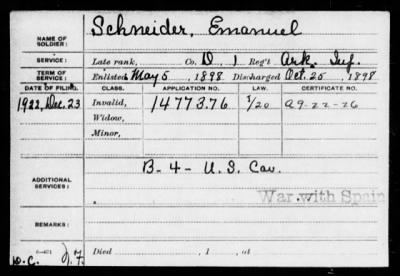 NAME OF SOLDIER: Schneider, Emanuel
SERVICE: Late rank, Co. D, 1 Reg't Ark. Inf.
TERM OF SERVICE: Enlisted May 5, 1898 Discharged Oct. 25, 1898
DATE OF FILING. CLASS. APPLICATION NO. LAW. CERTIFICATE NO.
1922, Dec. 23 Invalid, 1477376 1/20 A9-22-26
Widow,
Minor,
ADDITIONAL SERVICES: B-4- U.S. Cav.
War with Spain
REMARKS:
Died , 1 , at